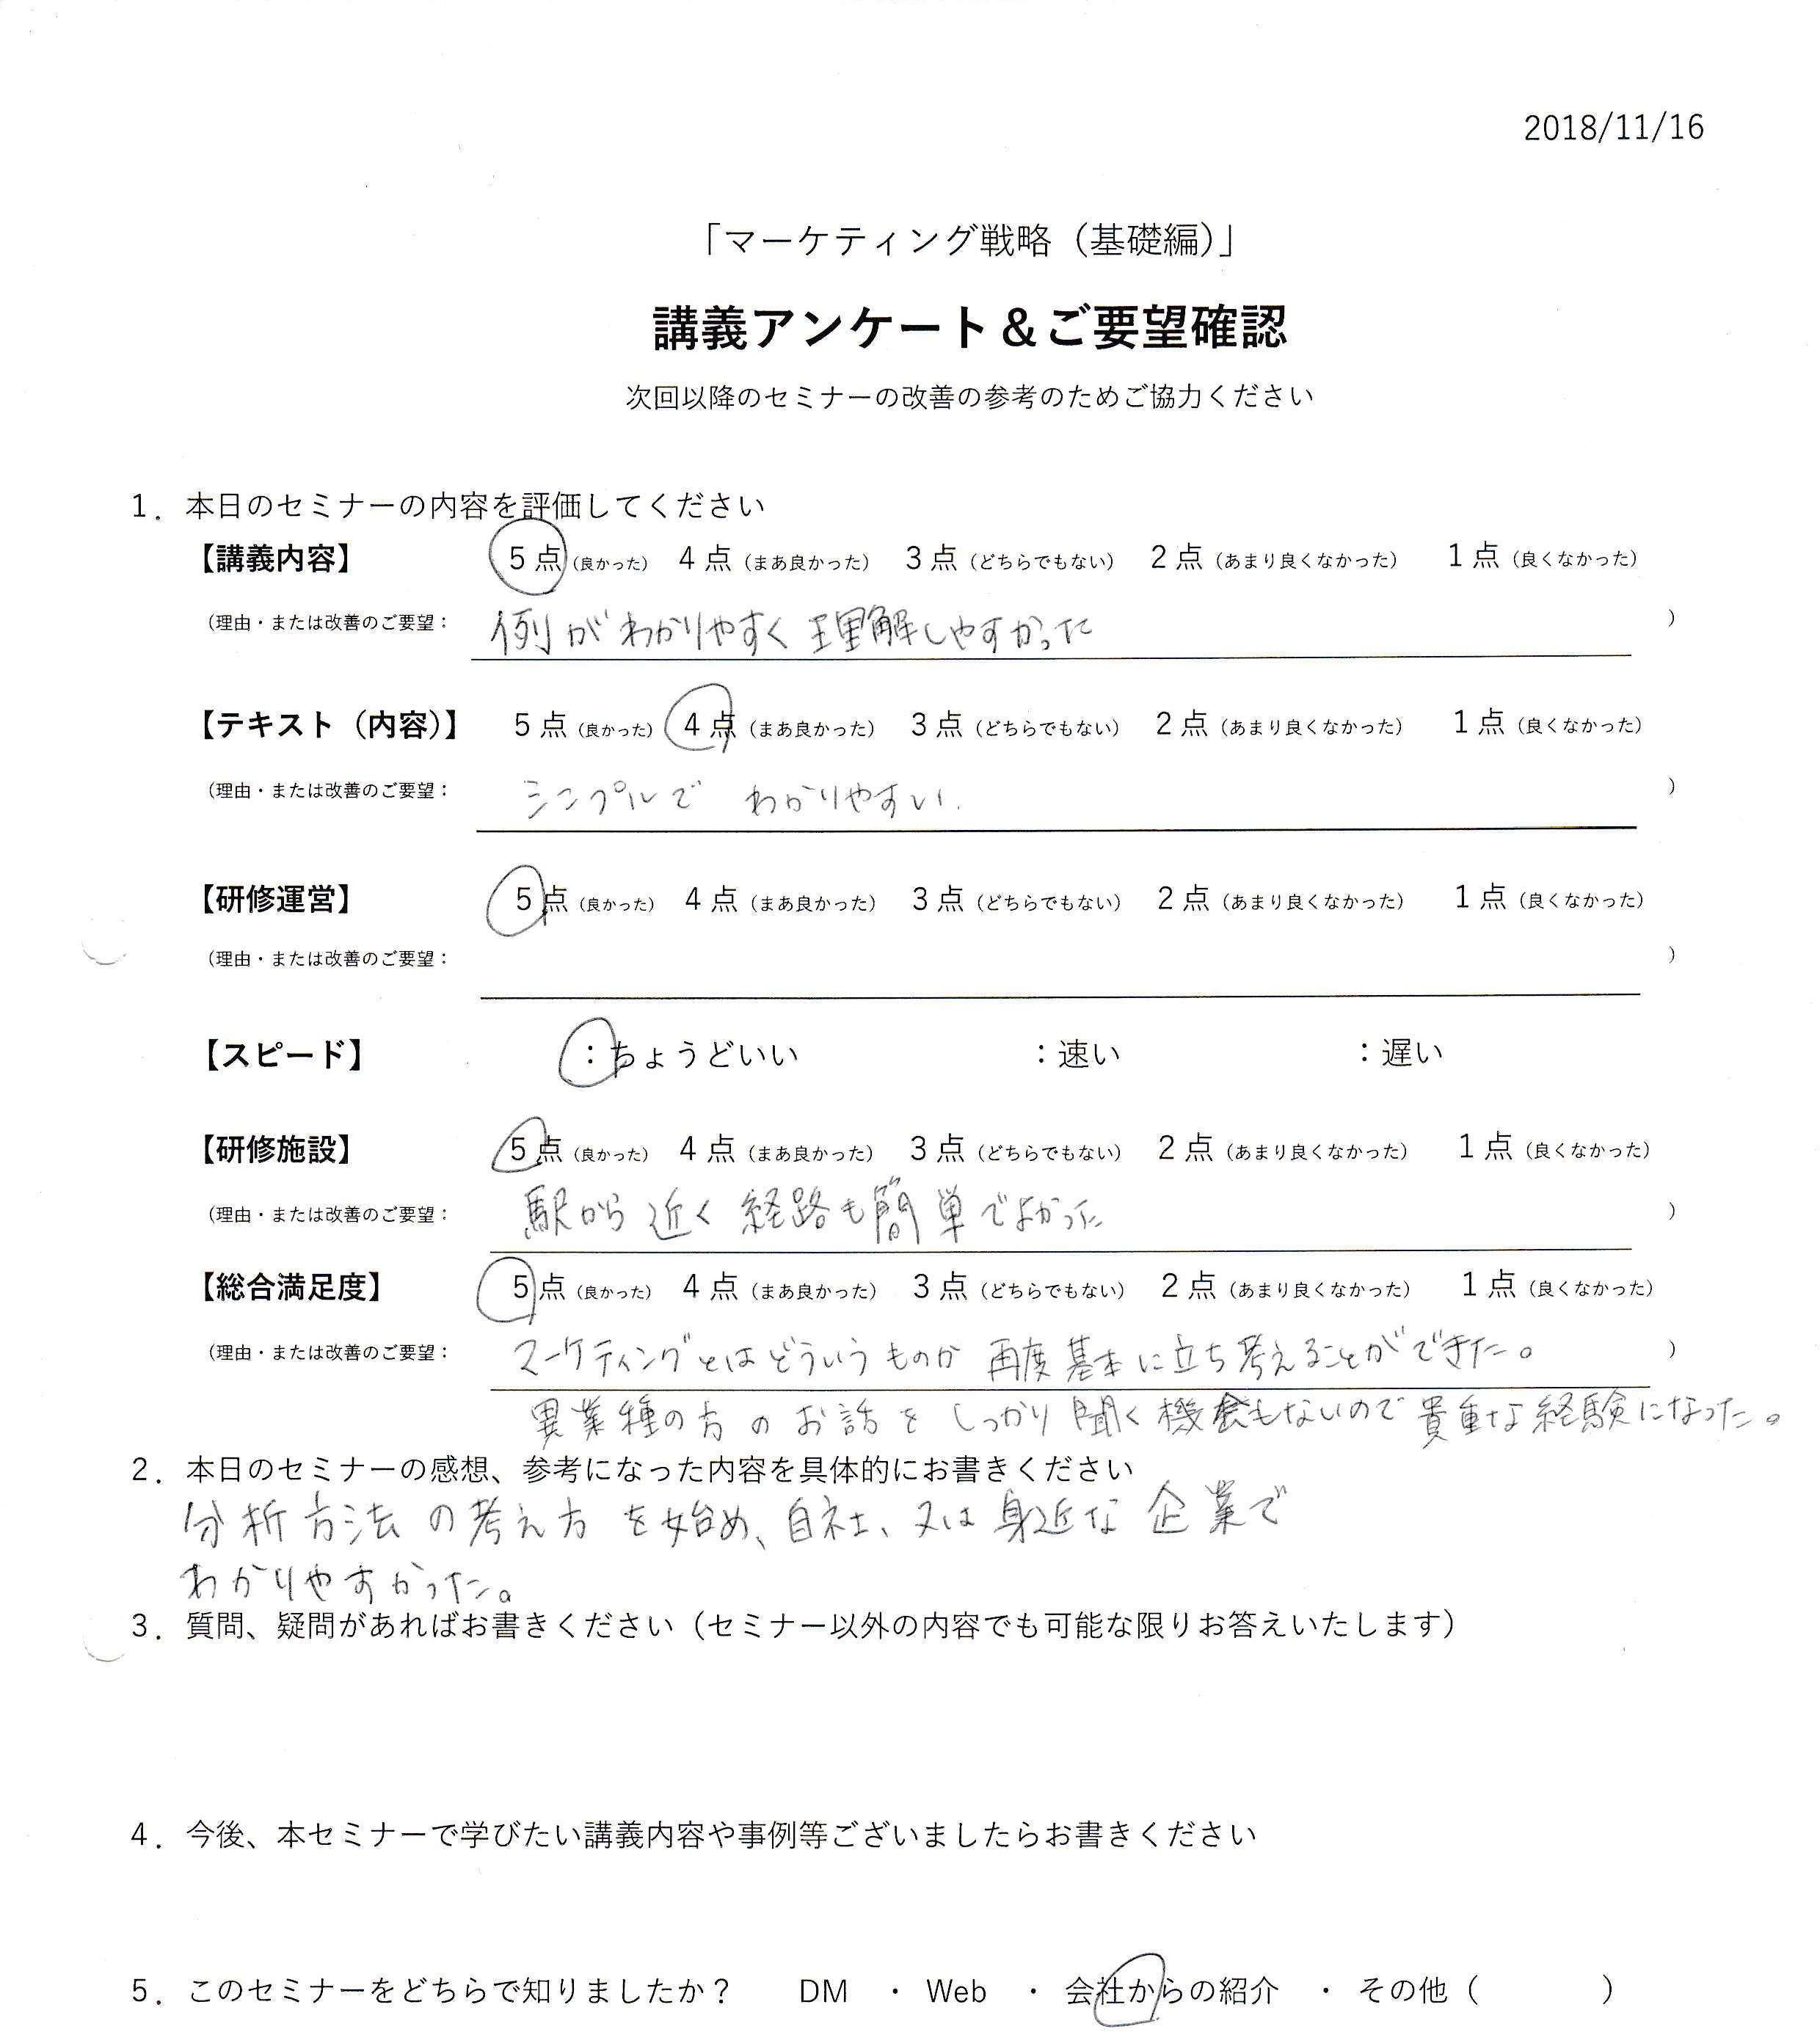 2018/11/16
「マーケティング戦略（基礎編）」
講義アンケート＆ご要望確認
次回以降のセミナーの改善の参考のためご協力ください
1．本日のセミナーの内容を評価してください
【講義内容】 5点（良かった） 4点（まあ良かった） 3点（どちらでもない） 2点（あまり良くなかった） 1点（良くなかった）
（理由・または改善のご要望： 例がわかりやすく理解しやすかった ）
【テキスト（内容）】 5点（良かった） 4点（まあ良かった） 3点（どちらでもない） 2点（あまり良くなかった） 1点（良くなかった）
（理由・または改善のご要望： シンプルで わかりやすい. ）
【研修運営】 5点（良かった） 4点（まあ良かった） 3点（どちらでもない） 2点（あまり良くなかった） 1点（良くなかった）
（理由・または改善のご要望： ）
【スピード】 ：ちょうどいい ：速い ：遅い
【研修施設】 5点（良かった） 4点（まあ良かった） 3点（どちらでもない） 2点（あまり良くなかった） 1点（良くなかった）
（理由・または改善のご要望： 駅から近く経路も簡単でよかった ）
【総合満足度】 5点（良かった） 4点（まあ良かった） 3点（どちらでもない） 2点（あまり良くなかった） 1点（良くなかった）
（理由・または改善のご要望： マーケティングとはどういうものか 再度基本に立ち考えることができた。 ）
異業種の方のお話をしっかり聞く機会もないので貴重な経験になった。
2．本日のセミナーの感想、参考になった内容を具体的にお書きください
分析方法の考え方を始め、自社、又は身近な企業で
わかりやすかった。
3．質問、疑問があればお書きください（セミナー以外の内容でも可能な限りお答えいたします）
4．今後、本セミナーで学びたい講義内容や事例等ございましたらお書きください
5．このセミナーをどちらで知りましたか？ DM ・ Web ・ 会社からの紹介 ・ その他（ ）